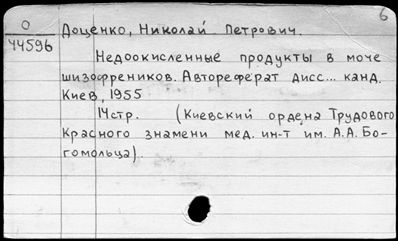 6
О
44596
Доценко, Николай Петрович.
Недоокисленные продукты в моче
шизофреников. Автореферат дисс... канд.
Киев, 1955
14стр. (Киевский ордена Трудового
Красного знамени мед. ин-т им. А.А. Бо-
гомольца).